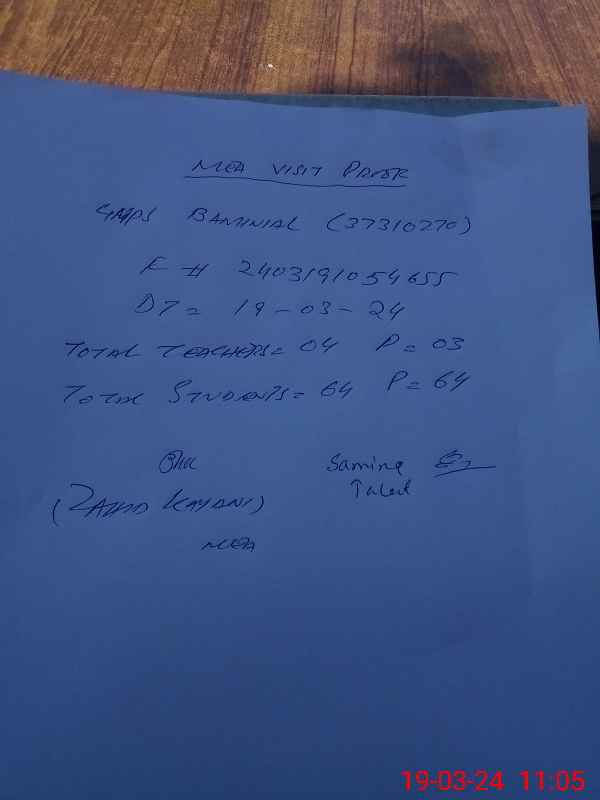 MEA VISIT PROOF
GMPS BAMINIAL (37310270)
F # 2403191054655
DT = 19-03-24
TOTAL TEACHERS = 04 P = 03
TOTAL STUDENTS = 64 P = 64
Samina
(ZAHID KAYANI)
MEA
19-03-24 11:05